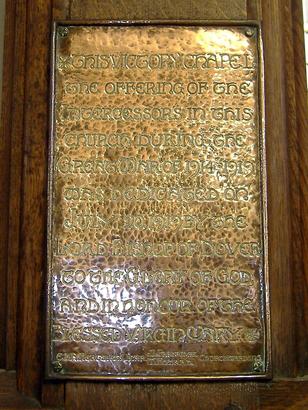 THIS VICTORY CHAPEL
THE OFFERING OF THE
INTERCESSORS IN THIS
CHURCH DURING THE
GREAT WAR OF 1914-1919
WAS DEDICATED ON
BY THE
LORD BISHOP OF DOVER
TO THE GLORY OF GOD
AND IN HONOUR OF THE
BLESSED VIRGIN MARY
CHURCHWARDENS